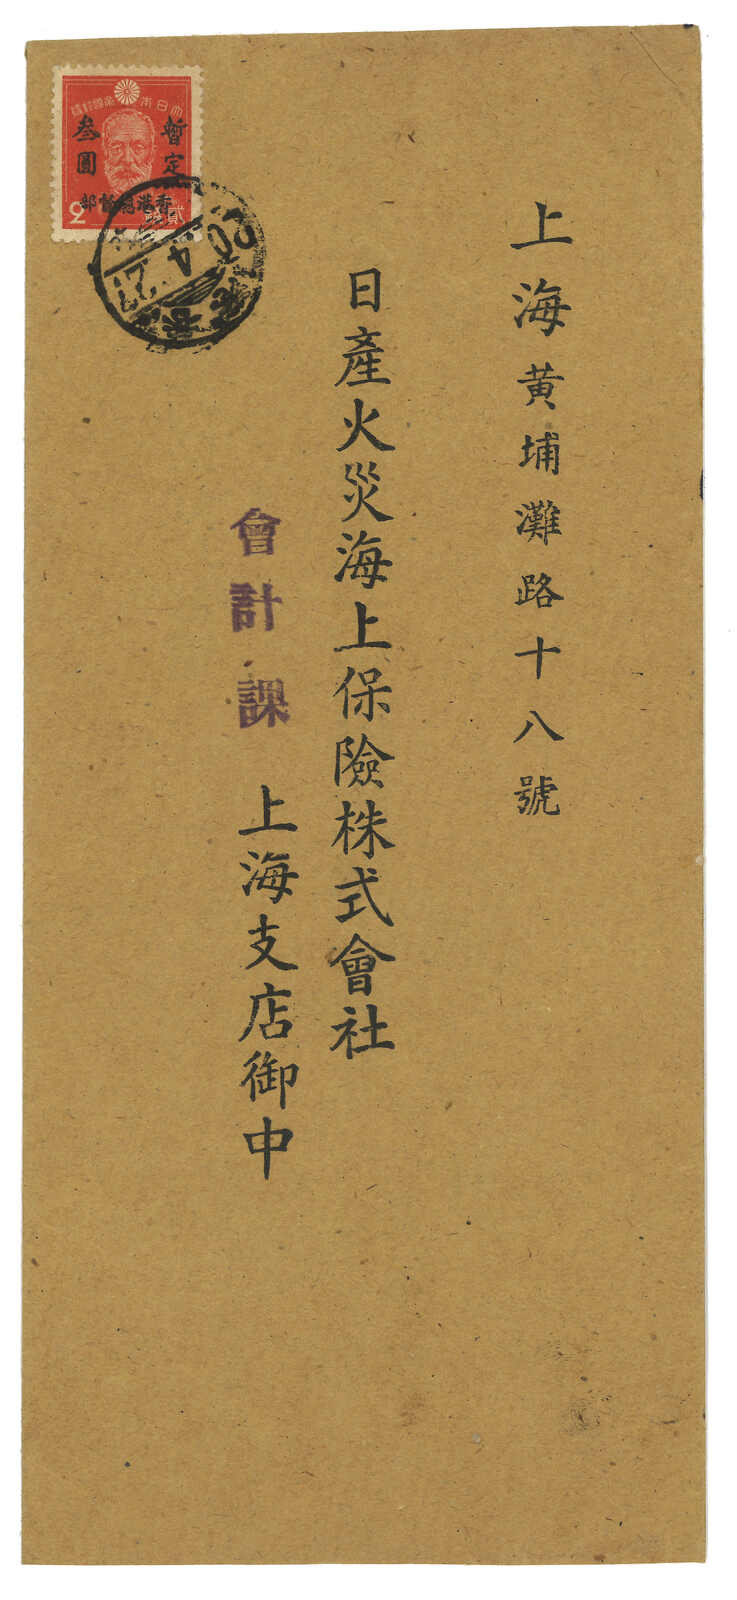 上海黄埔灘路十八號
日產火災海上保險株式會社
會計課
上海支店御中
暫定
叁圓
部督總港香
大日本帝國郵便
2
貳錢
20.4.21